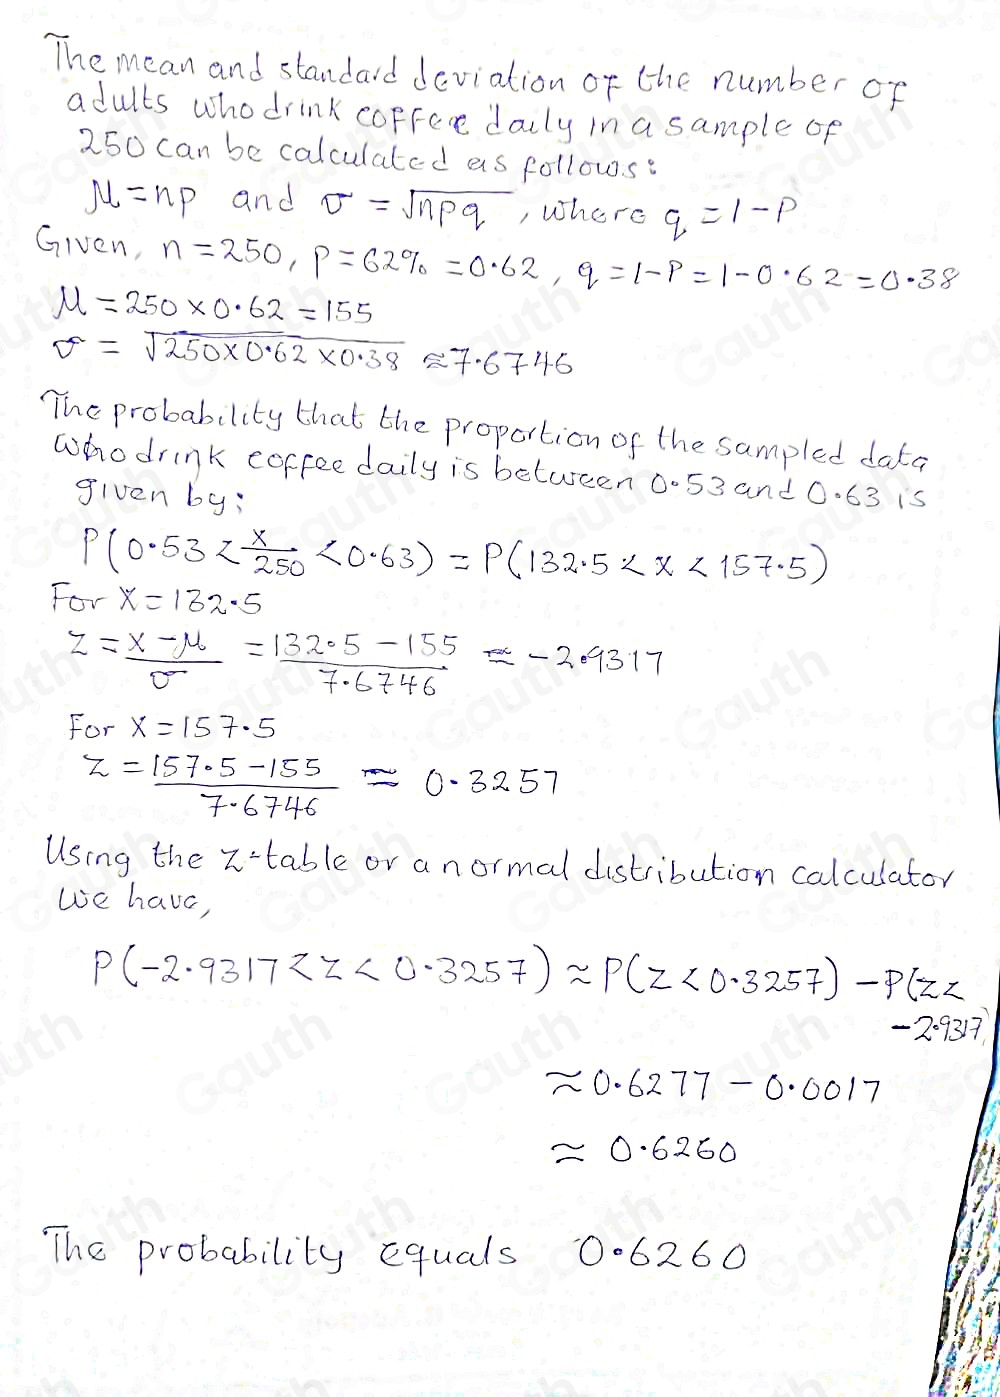 The mean and standard deviation of the number of
adults who drink coffee daily in a sample of
250 can be calculated as follows:
μ = np and σ = √npq, where q = 1 - P
Given, n = 250, p = 62% = 0.62, q = 1 - P = 1 - 0.62 = 0.38
μ = 250 × 0.62 = 155
σ = √250×0.62×0.38 ≈ 7.6746
The probability that the proportion of the sampled data
who drink coffee daily is between 0.53 and 0.63 is
given by:
P(0.53 < x/250 < 0.63) = P(132.5 < x < 157.5)
For X = 132.5
z = (x - μ)/σ = (132.5 - 155)/7.6746 ≈ -2.9317
For X = 157.5
z = (157.5 - 155)/7.6746 ≈ 0.3257
Using the z-table or a normal distribution calculator
we have,
P(-2.9317 < z < 0.3257) ≈ P(z < 0.3257) - P(z <
-2.9317)
≈ 0.6277 - 0.0017
≈ 0.6260
The probability equals 0.6260